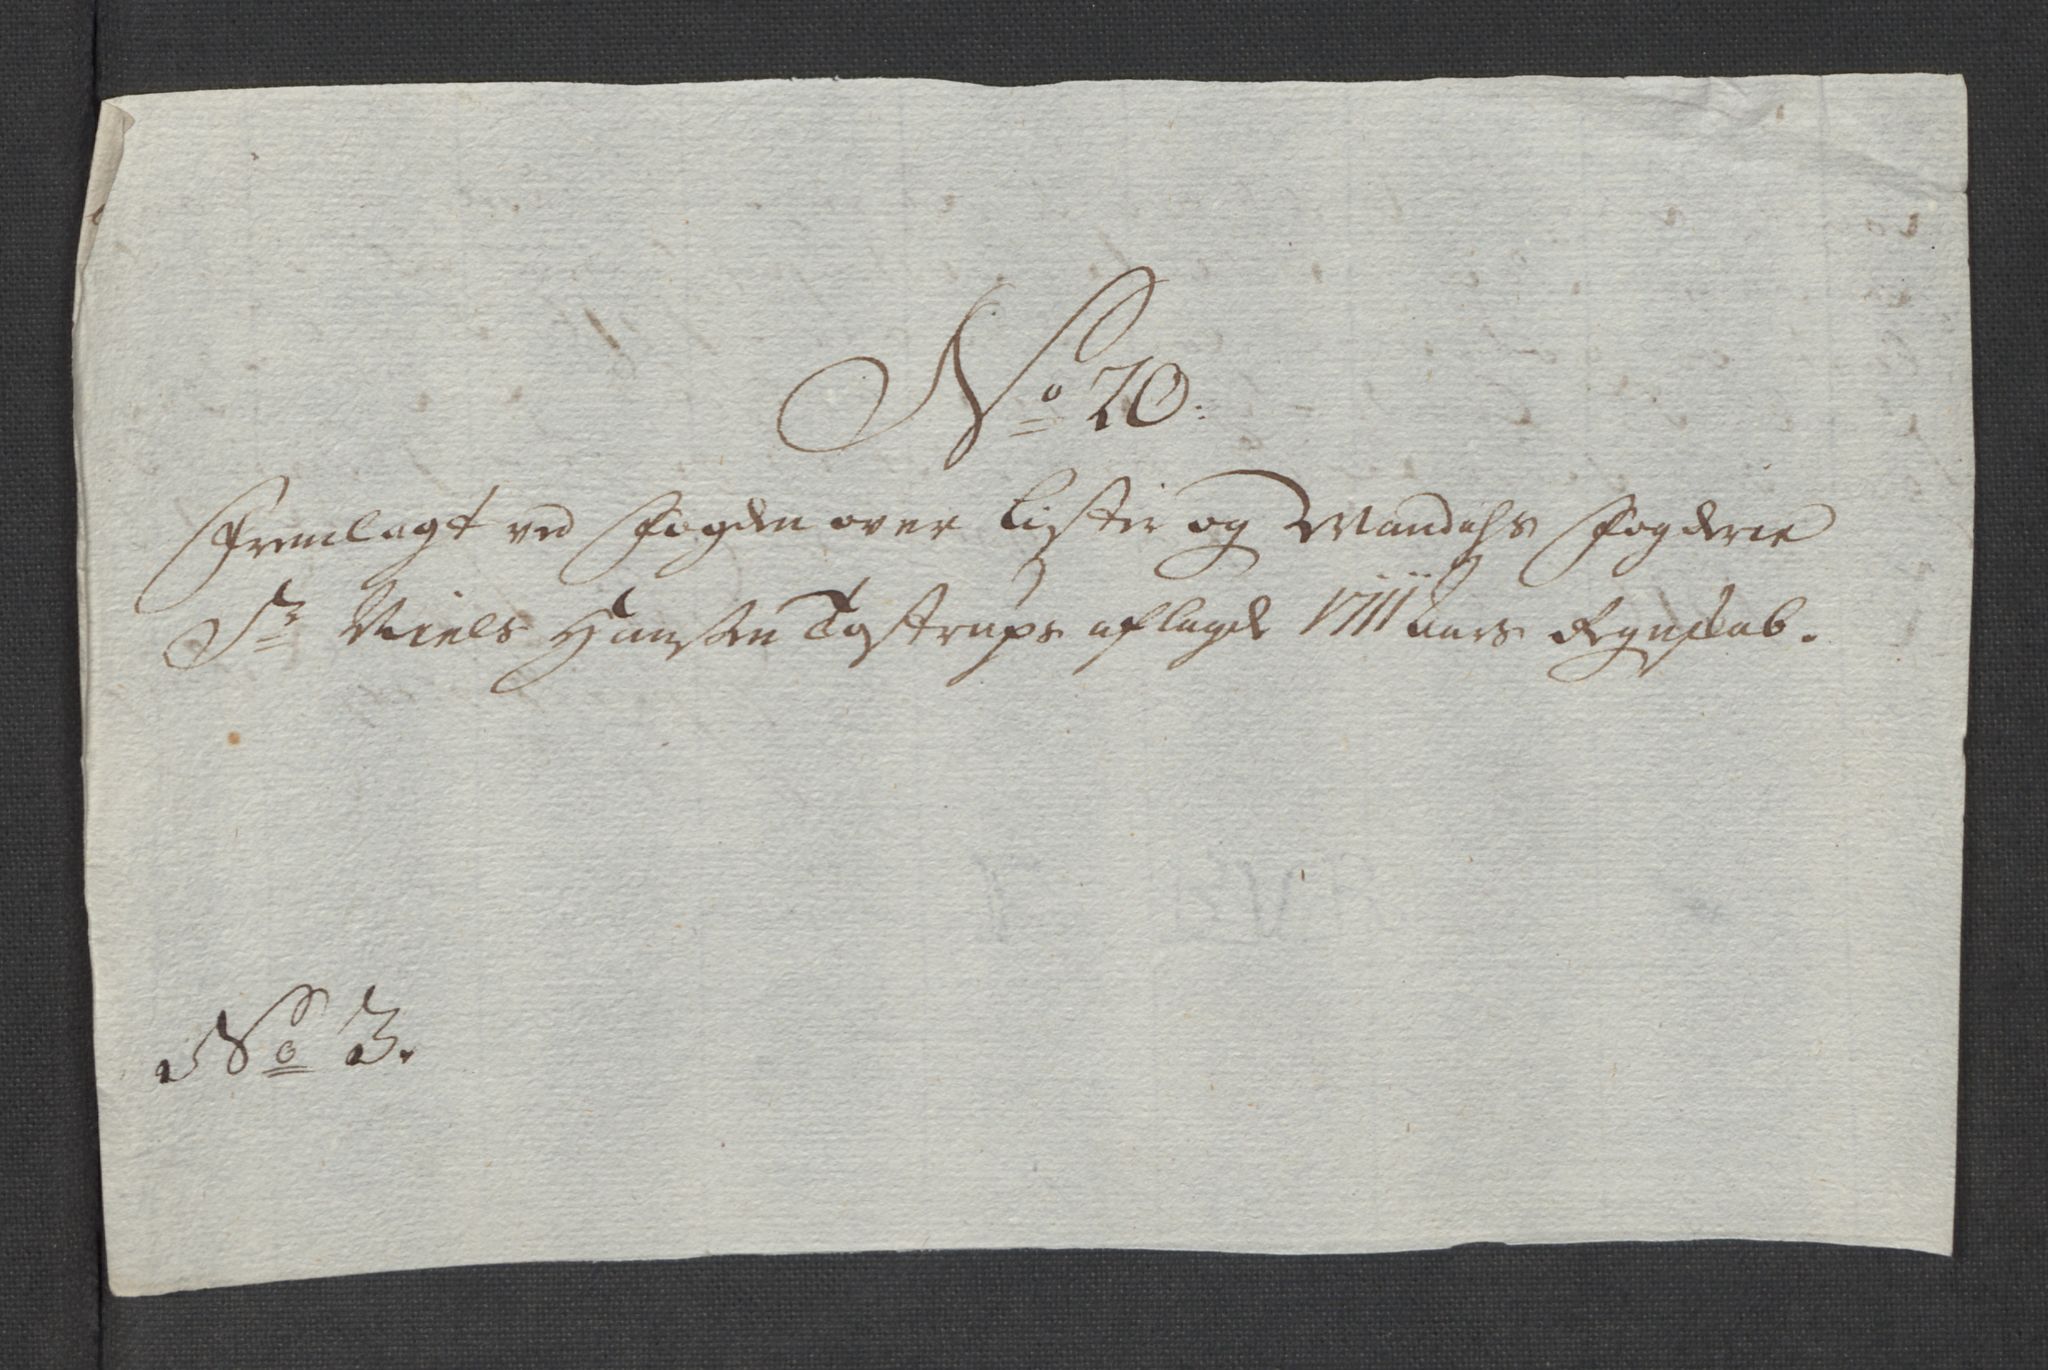 No 20.
Fremlagt ved Fogden over Lister og Mandahls Fogderie
Sr Niels Hansen Tostrups aflagde 1711 aars Regnskab.
No 3.